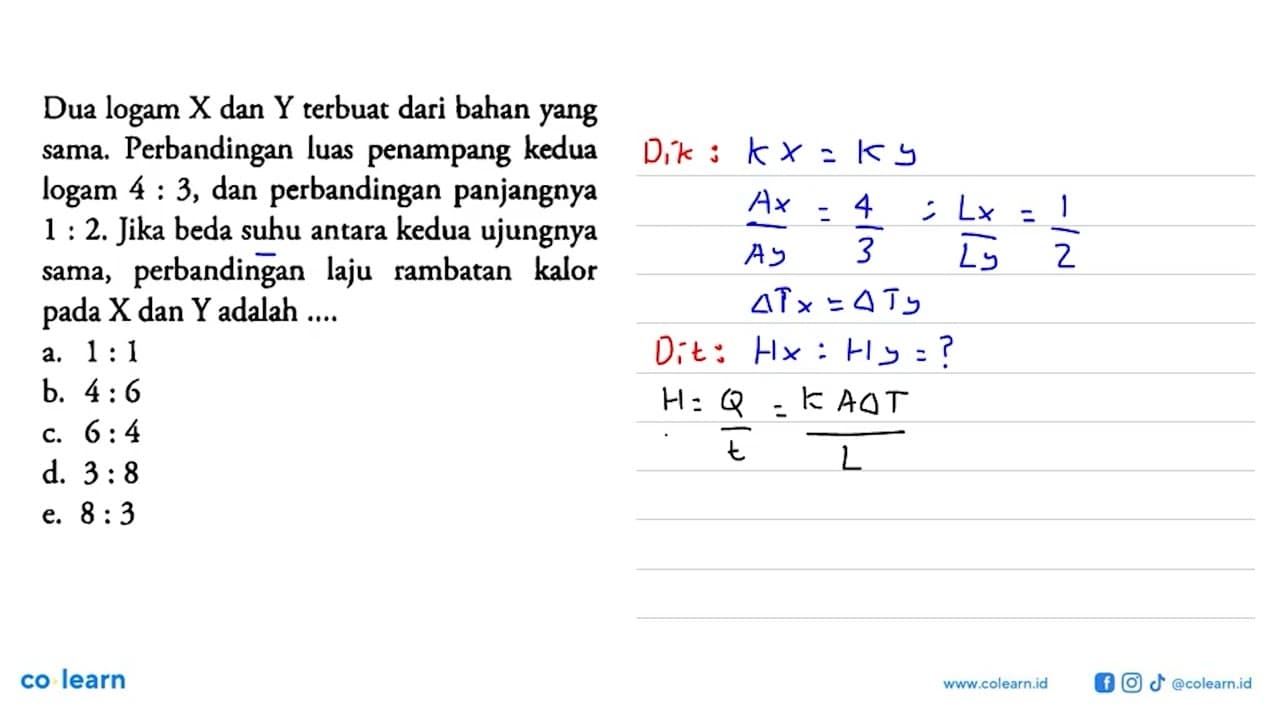 Dua logam X dan Y terbuat dari bahan yang
sama. Perbandingan luas penampang kedua
logam 4 : 3, dan perbandingan panjangnya
1 : 2. Jika beda suhu antara kedua ujungnya
sama, perbandingan laju rambatan kalor
pada X dan Y adalah ....
a. 1 : 1
b. 4 : 6
c. 6 : 4
d. 3 : 8
e. 8 : 3
Dik : Kx = Ky
Ax/Ay = 4/3 ; Lx/Ly = 1/2
ΔTx = ΔTy
Dit : Hx : Hy = ?
H = Q/t = K A Δ T/L
co learn
www.colearn.id
@colearn.id